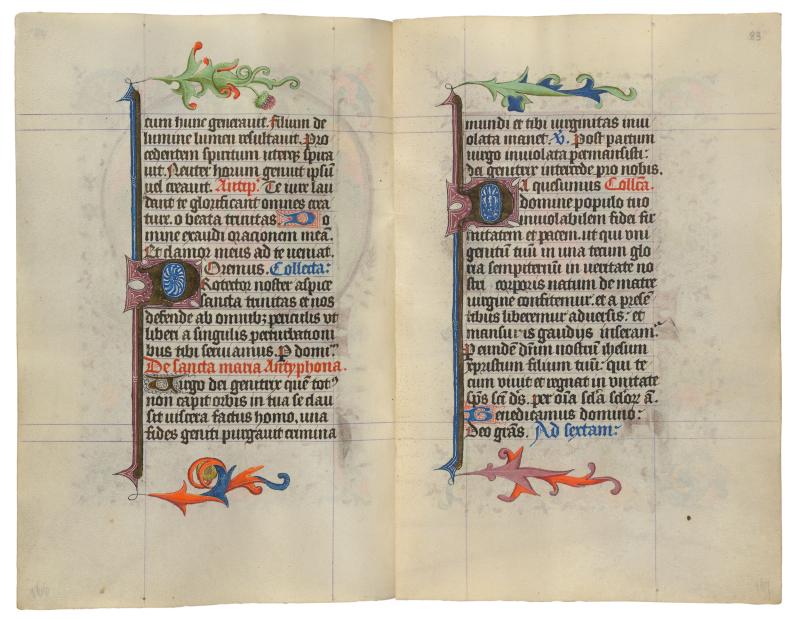 cum hunc generauit. filium de
lumine lumen resultauit. Pro
cedentem spiritum uterq; spira
uit. Neuter horum genuit ipsū
uel creauit. Antip̄. Te iure lau
dant te glorificant omnes crea
ture. o beata trinitas. Do
mine exaudi oracionem meā.
Et clamor meus ad te ueniat.
Oremus. Collecta:
Protector noster aspice
sancta trinitas et nos
defende ab omnibꝫ periculis vt
liberi a singulis perturbationi
bus tibi seruiamus. P domi
De sancta maria Antyphona.
Uirgo dei genitrix quē tot
non capit orbis in tua se clau
sit viscera factus homo. una
fides geniti purgauit crimina
83
mundi et tibi uirginitas inui
olata manet. v. Post partum
uirgo inuiolata permansisti:
dei genitrix intercede pro nobis.
Da quesumus Collecā.
domine populo tuo
inuiolabilem fidei fir
mitatem et pacem. ut qui vni
genitū tuū in una tecum glo
ria sempiternū in veritate no
stri corporis natum de matre
virgine confitemur. et a presē
tibus liberemur aduersis. et
mansuris gaudijs inseram
P eundē dūm nostrū ihesum
xpistum filium tuū: qui te
cum viuit et regnat in vnitate
sp̄s sc̄i d̄s. per oīa sc̄la sc̄lor ā.
Benedicamus domino:
Deo grās. Ad sextam: